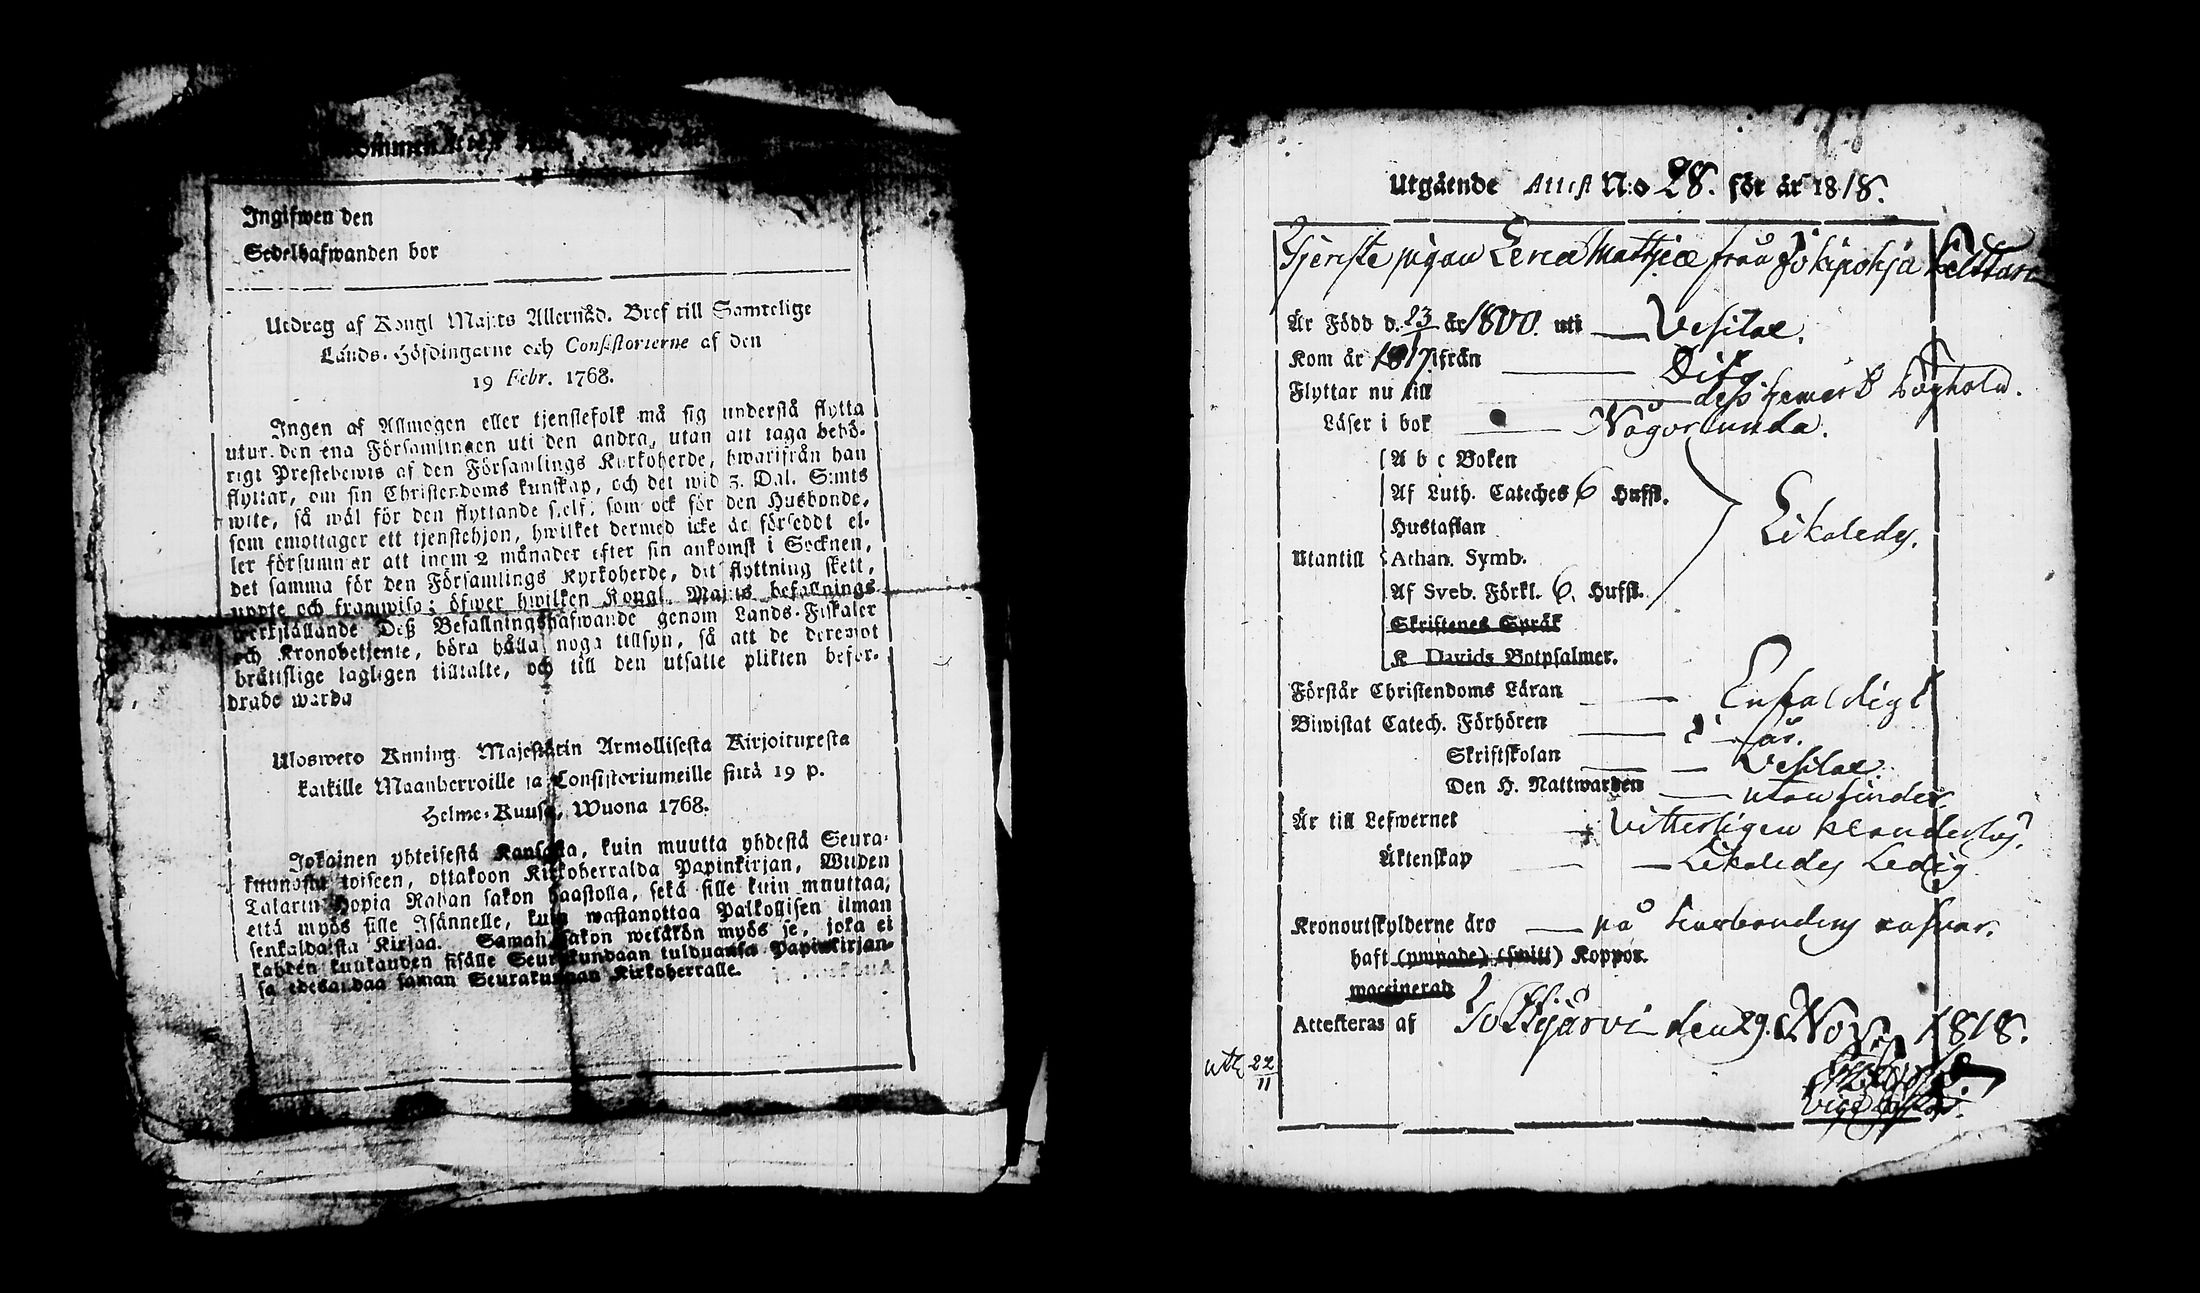 Ingifwen den
Sedelhafwanden bor
Utdrag af Kongl Maj:ts Allernåd. Bref till Samtelige
Lands-Höfdingarne och Consistorierne af den
19 Febr. 1768.
Ingen af Allmogen eller tjenstefolk må sig understå flytta
utur den ena Församlingen uti den andra, utan att taga behö-
rigt Prestebewis af den Församlings Kyrkoherde, hwarifrån han
flyttar, om sin Christendoms kunskap, och det wid 3. Dal. S:mts
wite, så wäl för den flyttande sielf, som ock för den Husbonde,
som emottager ett tjenstehjon, hwilket dermed icke är försedt el-
ler försummar att inom 2 månader efter sin ankomst i Socknen,
det samma för den Församlings Kyrkoherde, dit flyttning skett,
uppte och framwisa; öfwer hwilken Kongl. Maj:ts befallnings
werkställande Deß Befallningshafwande genom Lands-Fiskaler
och Kronobetjente, böra hålla noga tillsyn, så att de deremot
bråttslige lagligen tilltalte, och till den utsatte plikten befor-
drade warda
Ulosweto Kuning. Majestätin Armollisesta Kirjoituxesta
kaikille Maanherroille ja Consistoriumeille siitä 19 p.
Helme-Kuusa, Wuona 1768.
Jokainen yhteisestä Kansasta, kuin muutta yhdestä Seura-
kunnasta toiseen, ottakoon Kirkoherralda Papinkirjan, Wiiden
Talarin Hopia Rahan sakon haastolla, sekä sille kuin muuttaa,
että myös sille Isännelle, kuin wastanottaa Palkollisen ilman
senkaldaista Kirjaa. Saman sakon wetäkön myös je, joka ei
kahden kuukauden sisälle Seurakundaan tulduansa Papinkirjan-
sa edesandaa saman Seurakunnan Kirkoherralle.
Utgående Attest N:o 28. för år 1818.
Tjenste pigan Lena Mattjee från Jokipohja
Är Född d. 23 år 1800. uti Vesilax.
Kom år 1817 ifrån Dito
Flyttar nu till
Läser i bok Någorlunda.
A b c Boken
Af Luth. Cateches 6 Hufst.
Hustaflan
Utantill Athan. Symb. Likaledes.
Af Sveb. Förkl. 6. Hufst.
Skriftenes Språk
K Davids Botpsalmer.
Förstår Christendoms Läran Enfaldigt
Biwistat Catech. Förhören i år.
Skriftskolan Vesilax.
Den H. Nattwarden utan hinder
Är till Lefwernet Vitterligen klanderlös
Äktenskap Likaledes Ledig
Kronoutskylderne äro på husbondens ansvar.
haft (ympade) (smitt) Koppor.
waccinerad
Attesteras af Tottijärvi den 29. Nov 1818.
22
11